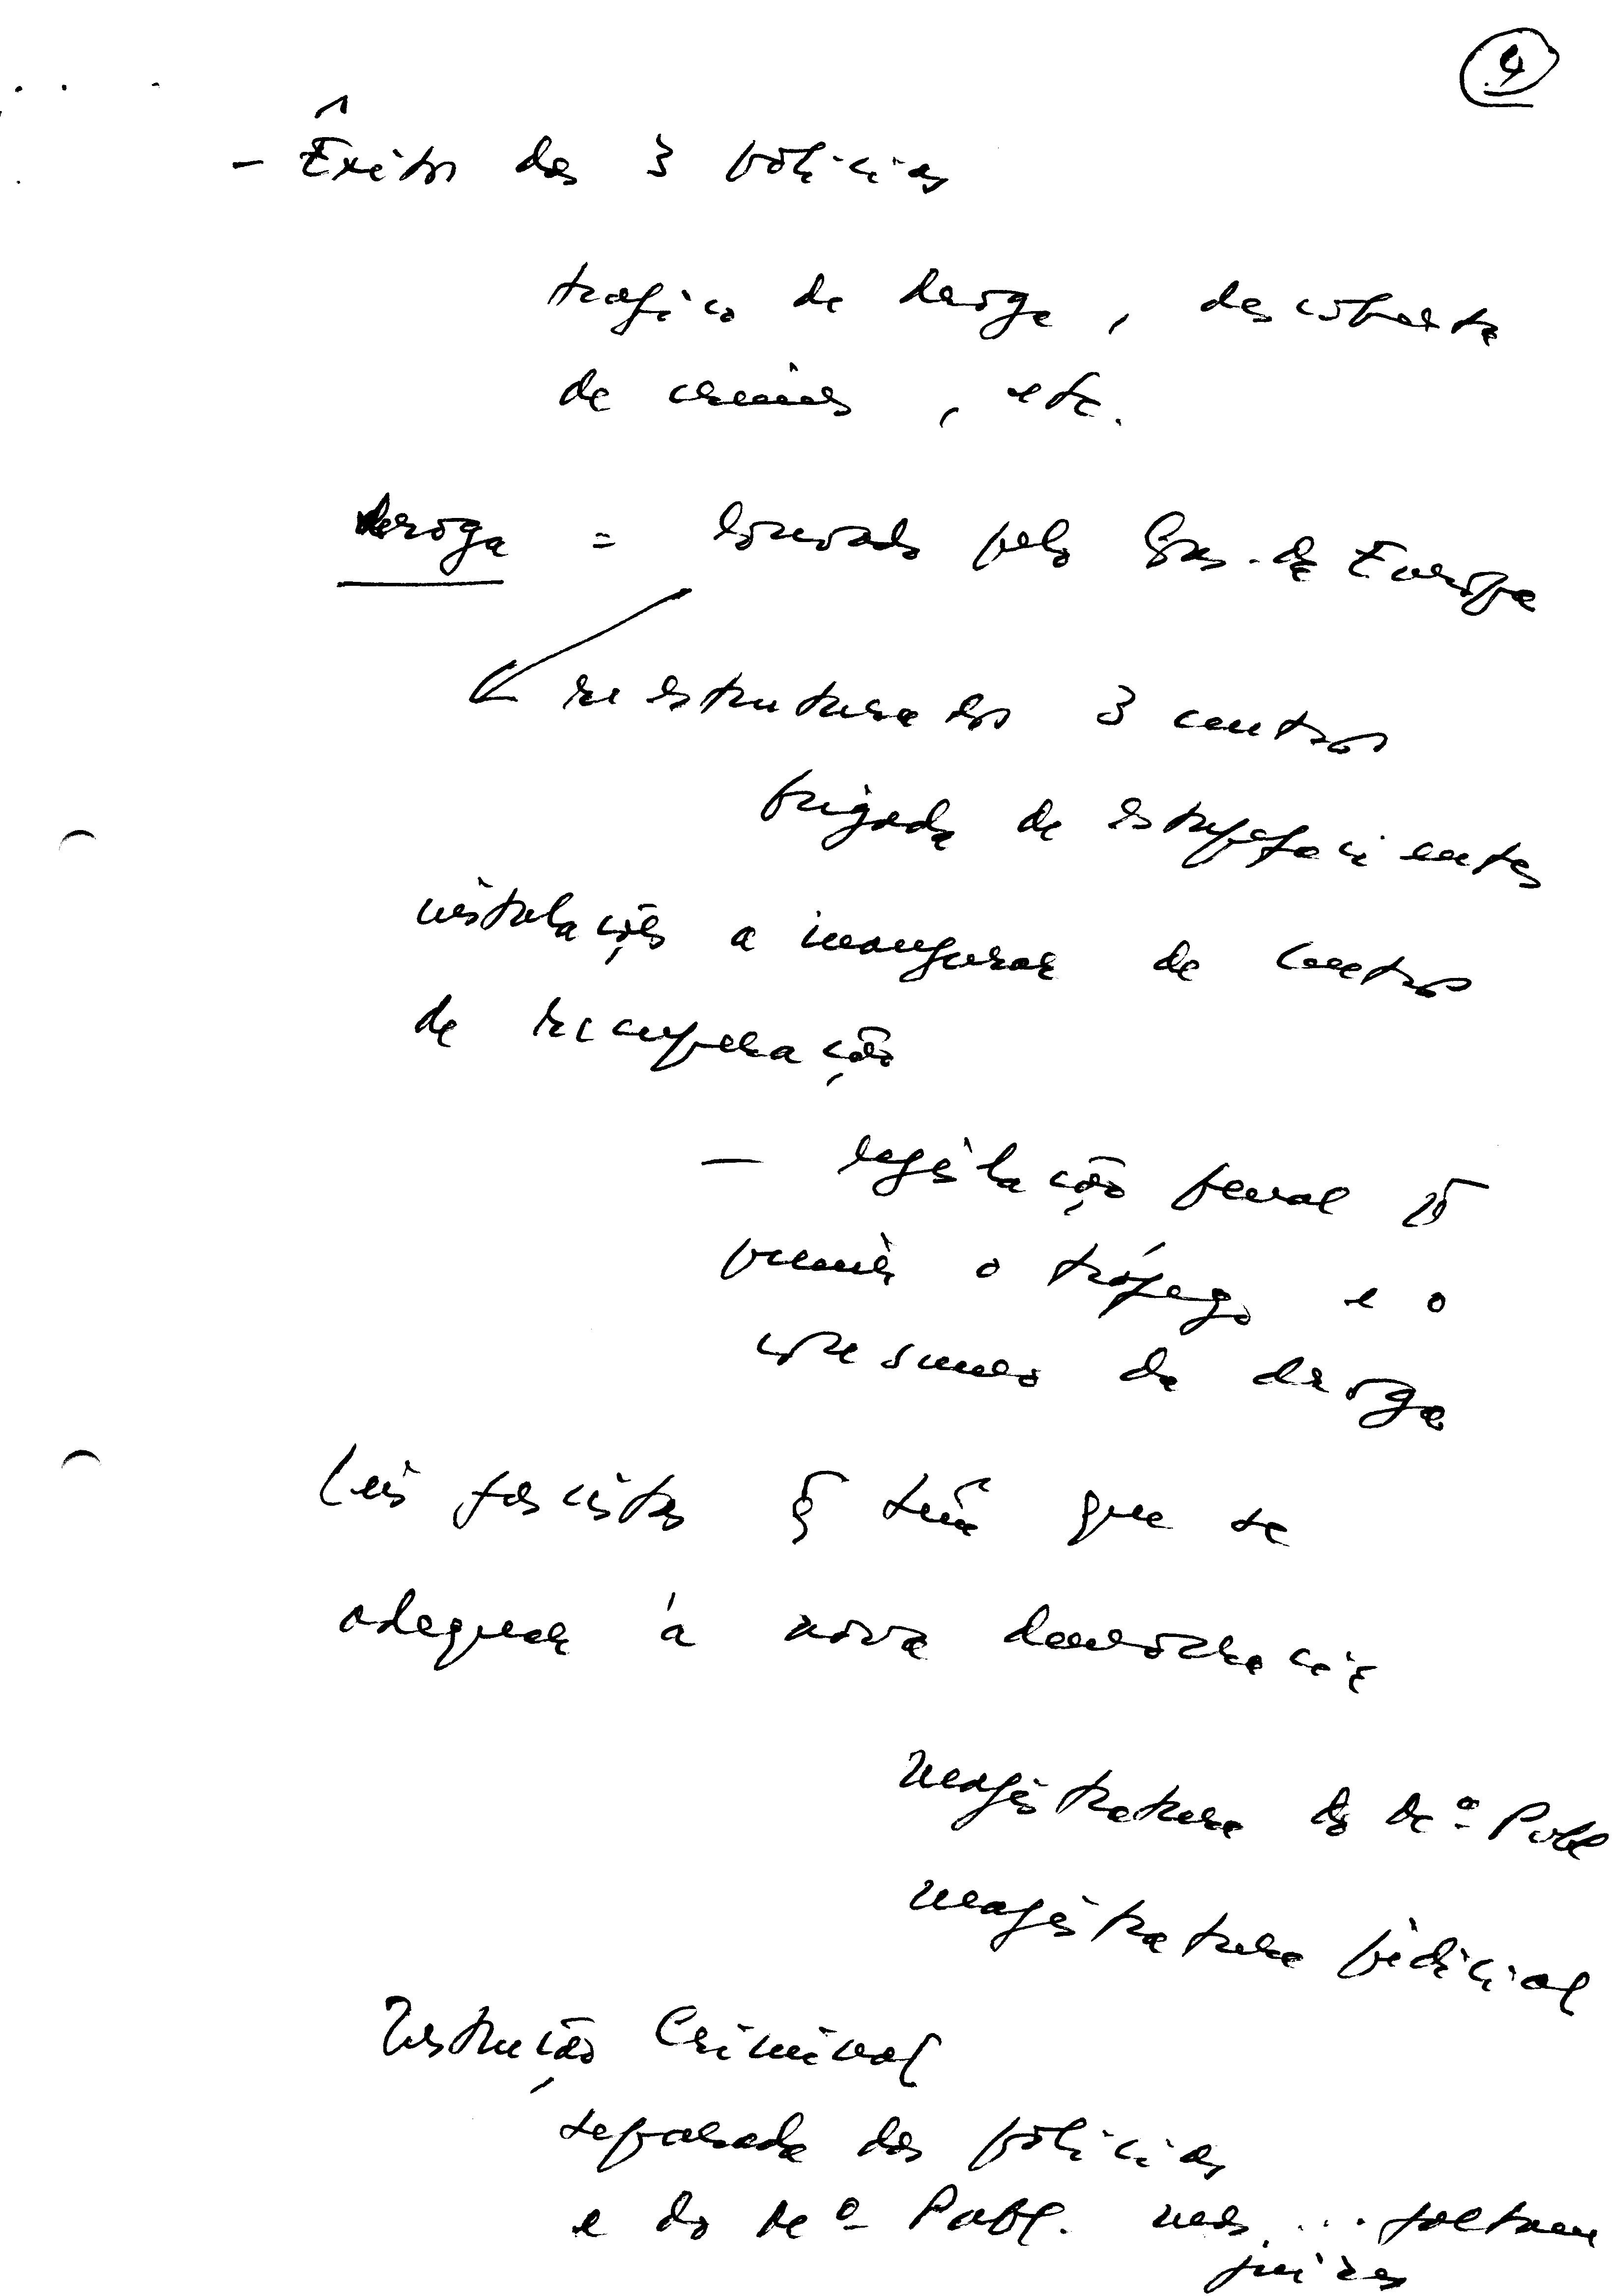 4
- Êxitos das 3 polícias
trafico de droga, descoberta
de crimes, etc.
droga = louvado pelo Cons. da Europa
reestruturados 3 centros
brigada de estupefacientes
instalações a inaugurar de centros
de recuperação
- legislação penal
o tráfego e o
consumo da droga
Leis fascistas q têm que se
adequar à nova democracia
magistratura do Mº Públ
magistratura judicial
Instrução Criminal
separada das polícias
e do Mº Públ. mas ... faltam
juízes